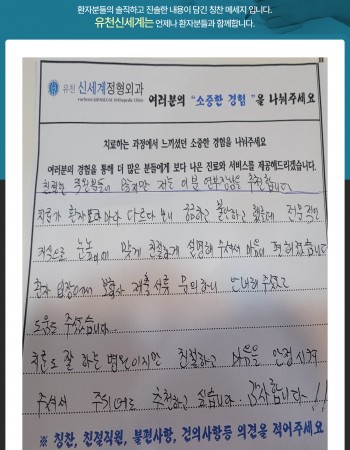 환자분들의 솔직하고 진솔한 내용이 담긴 칭찬 메세지 입니다.
유천신세계는 언제나 환자분들과 함께합니다.
유천 신세계정형외과
여러분의 "소중한 경험"을 나눠주세요
치료하는 과정에서 느끼셨던 소중한 경험을 나눠주세요
여러분의 경험을 통해 더 많은 분들에게 보다 나은 진료와 서비스를 제공해드리겠습니다.
친절한 직원분들이 많지만 저는 이분 부장님을 추천합니다
치료가 환자분마다 다르다 보니 궁금하고 불안하고 했는데 전문적인
지식으로 눈높이 맞게 친절하게 설명해 주셔서 마음이 편해졌습니다
환자 입장에서 보험사 제출 서류 문의하니 안내해 주셨고
도움을 주셨습니다...
치료도 잘 하는 병원이지만 친절하고 마음을 안정시켜
주셔서 주위에도 추천하고 싶습니다 감사합니다~!!
※ 칭찬, 친절직원, 불편사항, 건의사항등 의견을 적어주세요